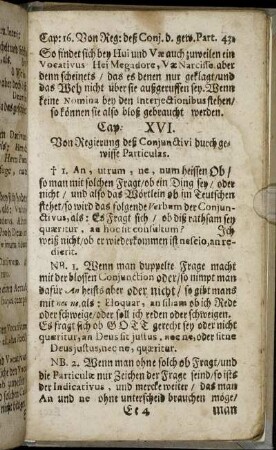 Cap: 16. Von Reg: deß Conj. d. gew. Part. 431
So findet sich bey Hui und Væ auch zuweilen ein
Vocativus Hei Megadore, Væ Narcisse. aber
denn scheinets / das es denen nur geklagt / und
das Weh nicht über sie außgeruffen sey. Wenn
keine Nomina bey den Interjectionibus stehen /
so können sie also bloß gebraucht werden.
Cap. XVI.
Von Regierung deß Conjunctivi durch ge-
wisse Particulas.
† 1. An, utrum, ne, num heissen Ob /
so man mit solchen Fragt / ob ein Ding sey / oder
nicht / und also das Wörtlein ob im Teutschen
stehet / so wird das folgende Verbum der Conjun-
ctivus, als: Es Fragt sich / ob diß rathsam sey
quæritur, an hoc sit consultum? Ich
weiß nicht / ob er wiederkommen ist nescio, an re-
dierit.
NB. 1. Wenn man duppelte Fragt macht
mit der blossen Conjunction oder / so nimpt man
dafür An heists aber oder nicht / so gibt mans
mit nec ne, als: Eloquar, an siliam ob ich Rede
oder schweige / oder soll ich reden oder schweigen.
Es fragt sich ob GOTT gerecht sey oder nicht
quæritur, an Deus sit justus, nec ne, oder sitne
Deus justus, nec ne, quæritur.
NB. 2. Wenn man ohne solch ob Fragt / und
die Particulæ nur Zeichen der Frage seind / so ists
der Indicativus, und mercke weiter / das man
An und ne ohne unterscheid brauchen möge /
Ee 4 man